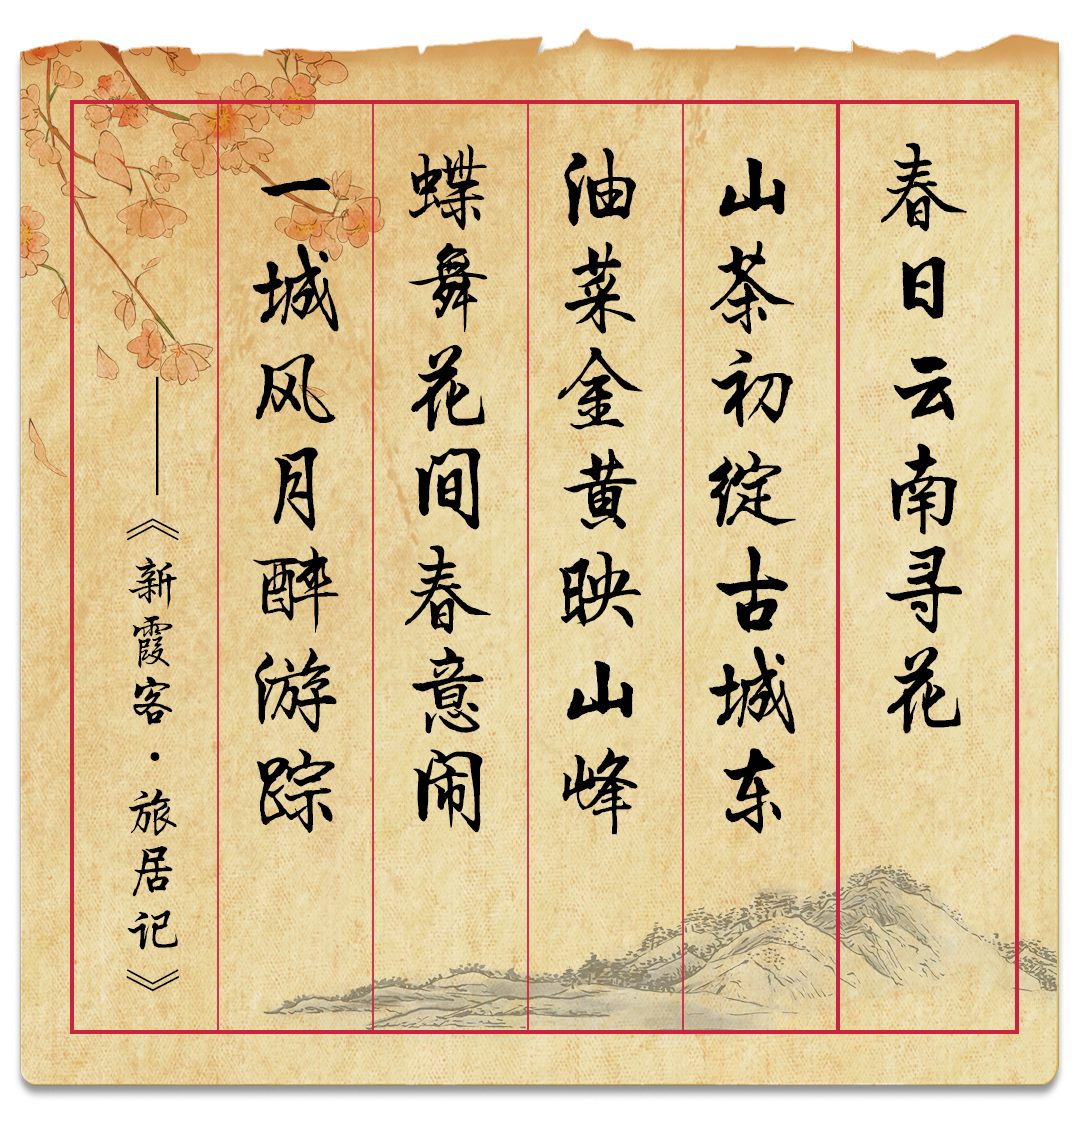 春日云南寻花
山茶初绽古城东
油菜金黄映山峰
蝶舞花间春意闹
一城风月醉游踪
——《新霞客·旅居记》